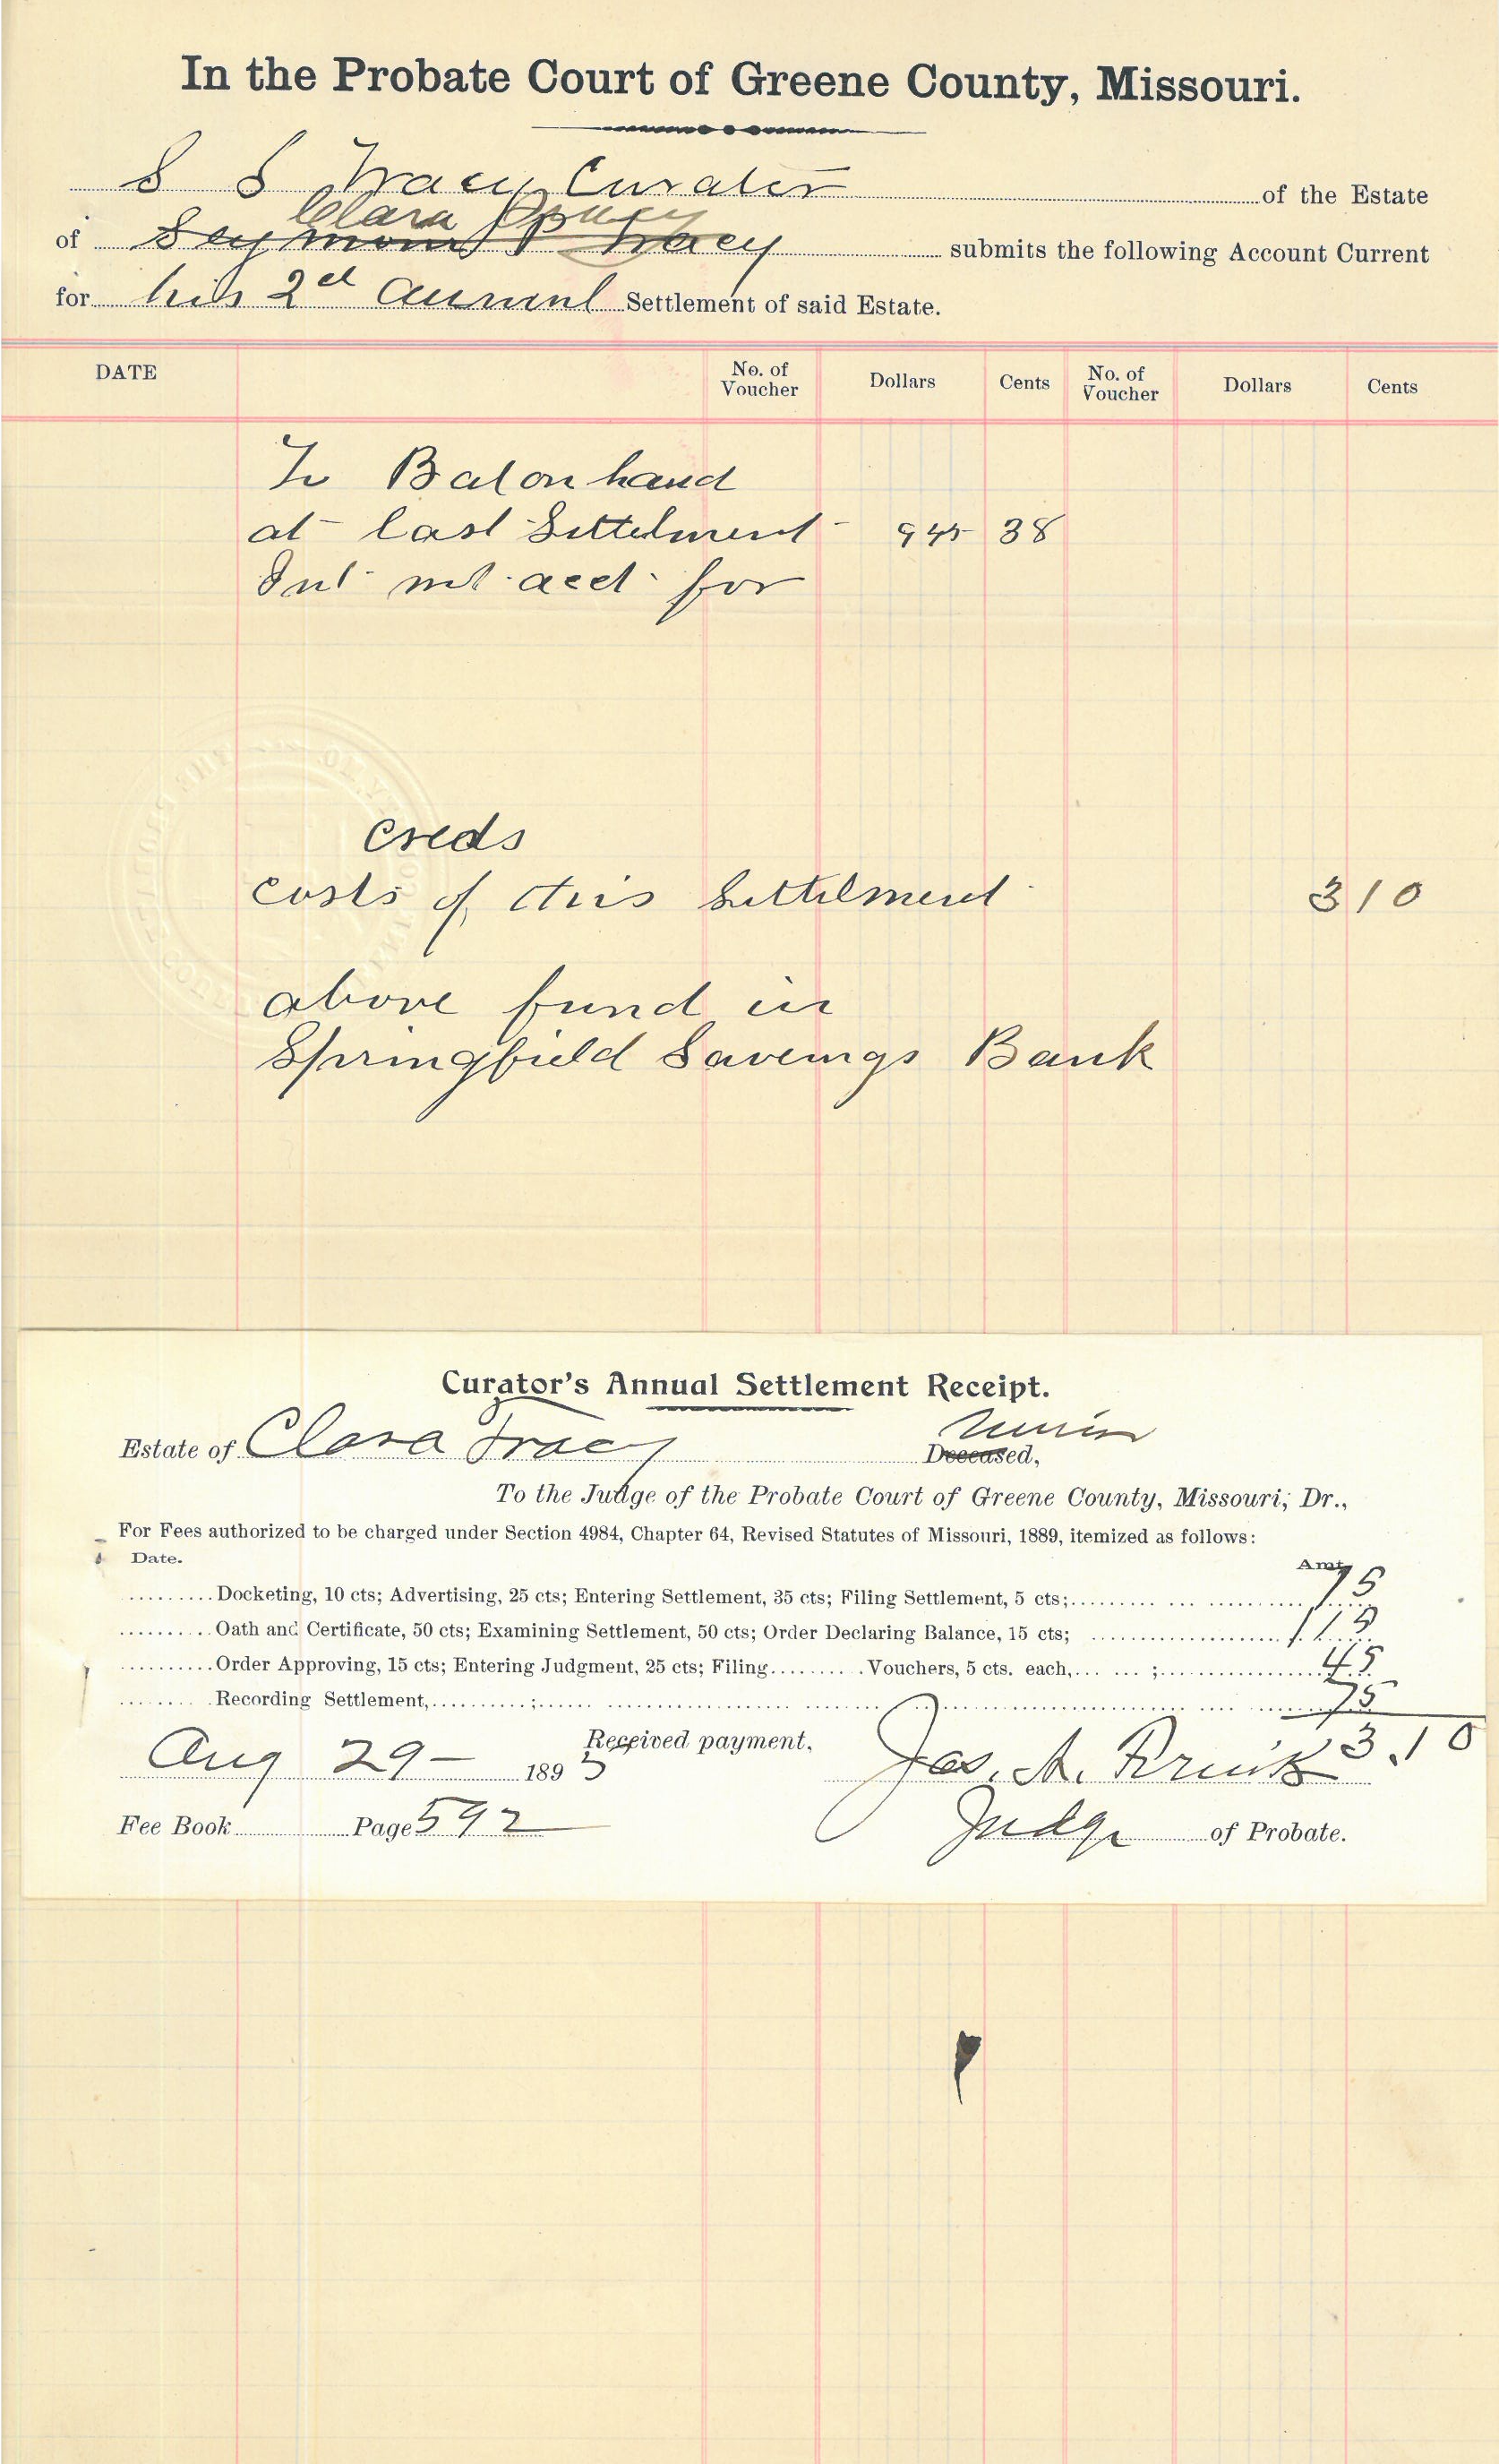 In the Probate Court of Greene County, Missouri.
S S Tracy Curator of the Estate
Clara Tracy
of Seymour P Tracy submits the following Account Current
for his 2d Annual Settlement of said Estate.
DATE No. of Voucher Dollars Cents No. of Voucher Dollars Cents
To Bal on hand
at last Settelment 945 38
Int not acct for
Creds
Costs of this Settelment 3 10
above fund in
Springfield Savings Bank
Curator's Annual Settlement Receipt.
Minor
Estate of Clara Tracy Deceased,
To the Judge of the Probate Court of Greene County, Missouri, Dr.,
For Fees authorized to be charged under Section 4984, Chapter 64, Revised Statutes of Missouri, 1889, itemized as follows:
Date. Amt
Docketing, 10 cts; Advertising, 25 cts; Entering Settlement, 35 cts; Filing Settlement, 5 cts; 75
Oath and Certificate, 50 cts; Examining Settlement, 50 cts; Order Declaring Balance, 15 cts; 1.15
Order Approving, 15 cts; Entering Judgment, 25 cts; Filing Vouchers, 5 cts. each, ; 45
Recording Settlement, ; 75
3.10
Received payment,
Aug 29 - 1895 Jas. A.
Fee Book Page 592 Judge of Probate.